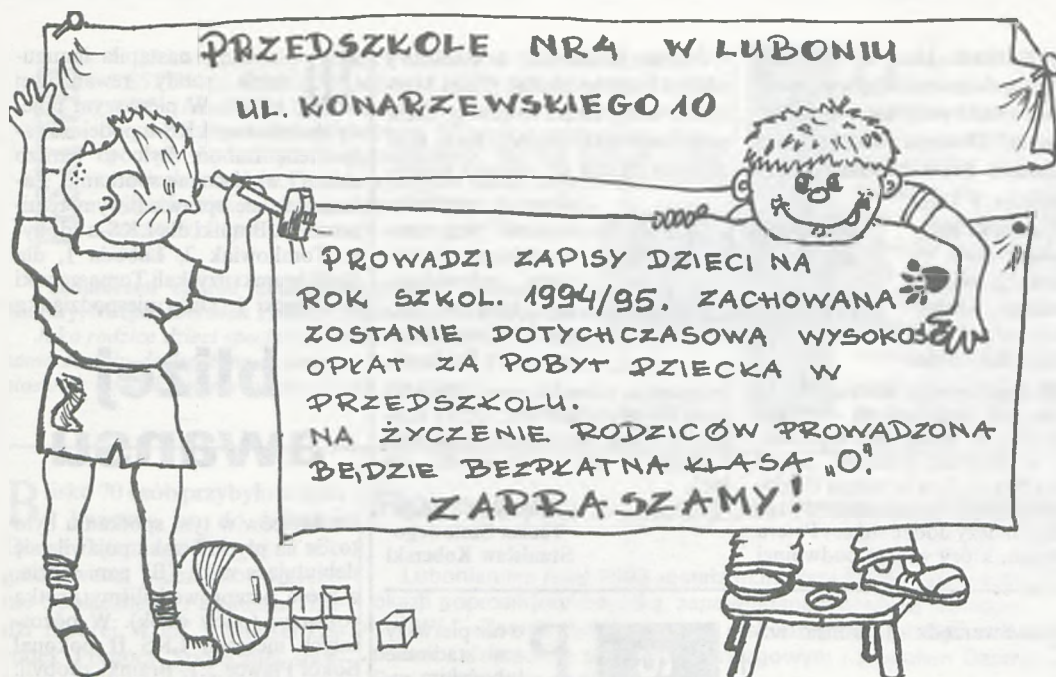 PRZEDSZKOLE NR4 W LUBONIU
UL. KONARZEWSKIEGO 10
PROWADZI ZAPISY DZIECI NA
ROK SZKOL. 1994/95. ZACHOWANA
ZOSTANIE DOTYCHCZASOWA WYSOKOŚ
OPŁAT ZA POBYT DZIECKA W
PRZEDSZKOLU.
NA ŻYCZENIE RODZICÓW PROWADZONA
BĘDZIE BEZPŁATNA KLASA „O”.
ZAPRASZAMY!